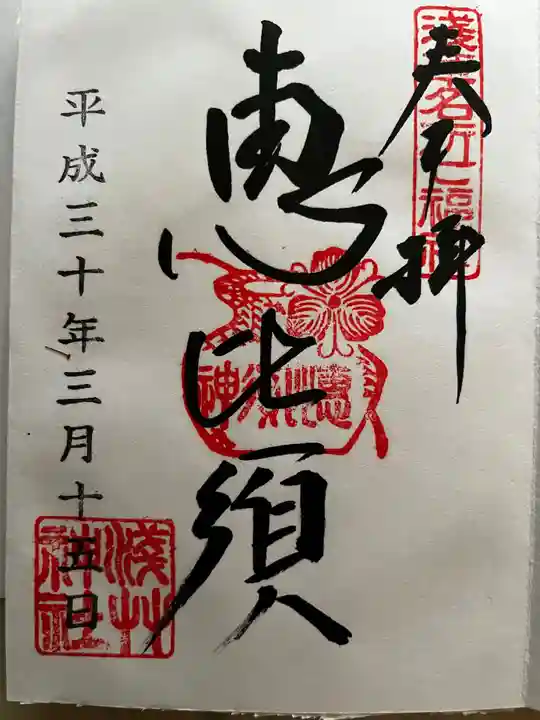 奉拝
浅草名所七福神
恵比須
恵比須神
平成三十年三月十五日
浅草神社